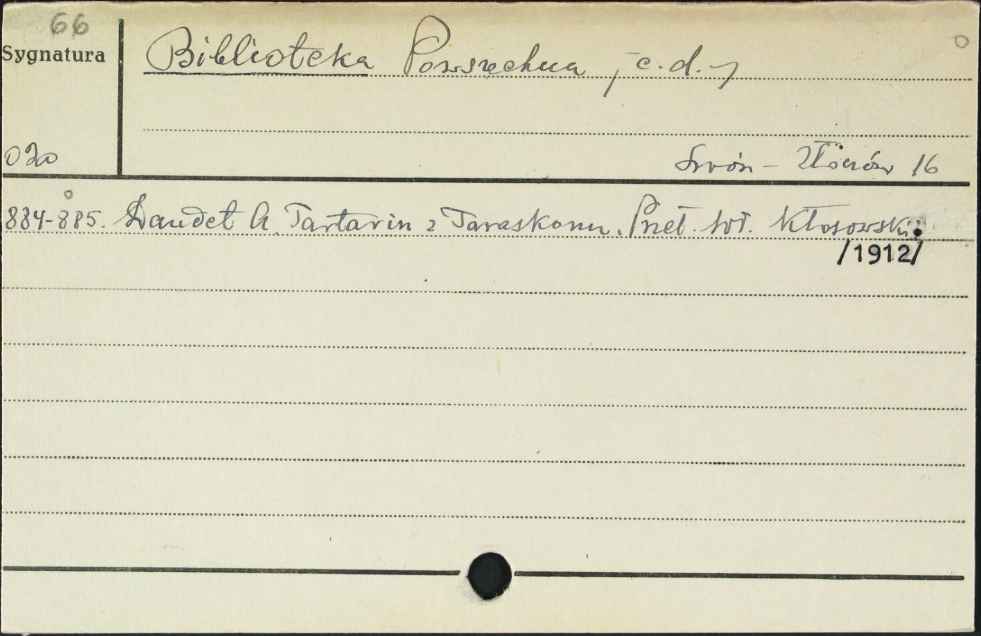 66
Sygnatura
Biblioteka Powszechna /c.d./
020
Lwów - Złoczów 16
884-885. Daudet A. Tartarin z Taraskonu. Przeł. Wł. Kłosowski
/1912/